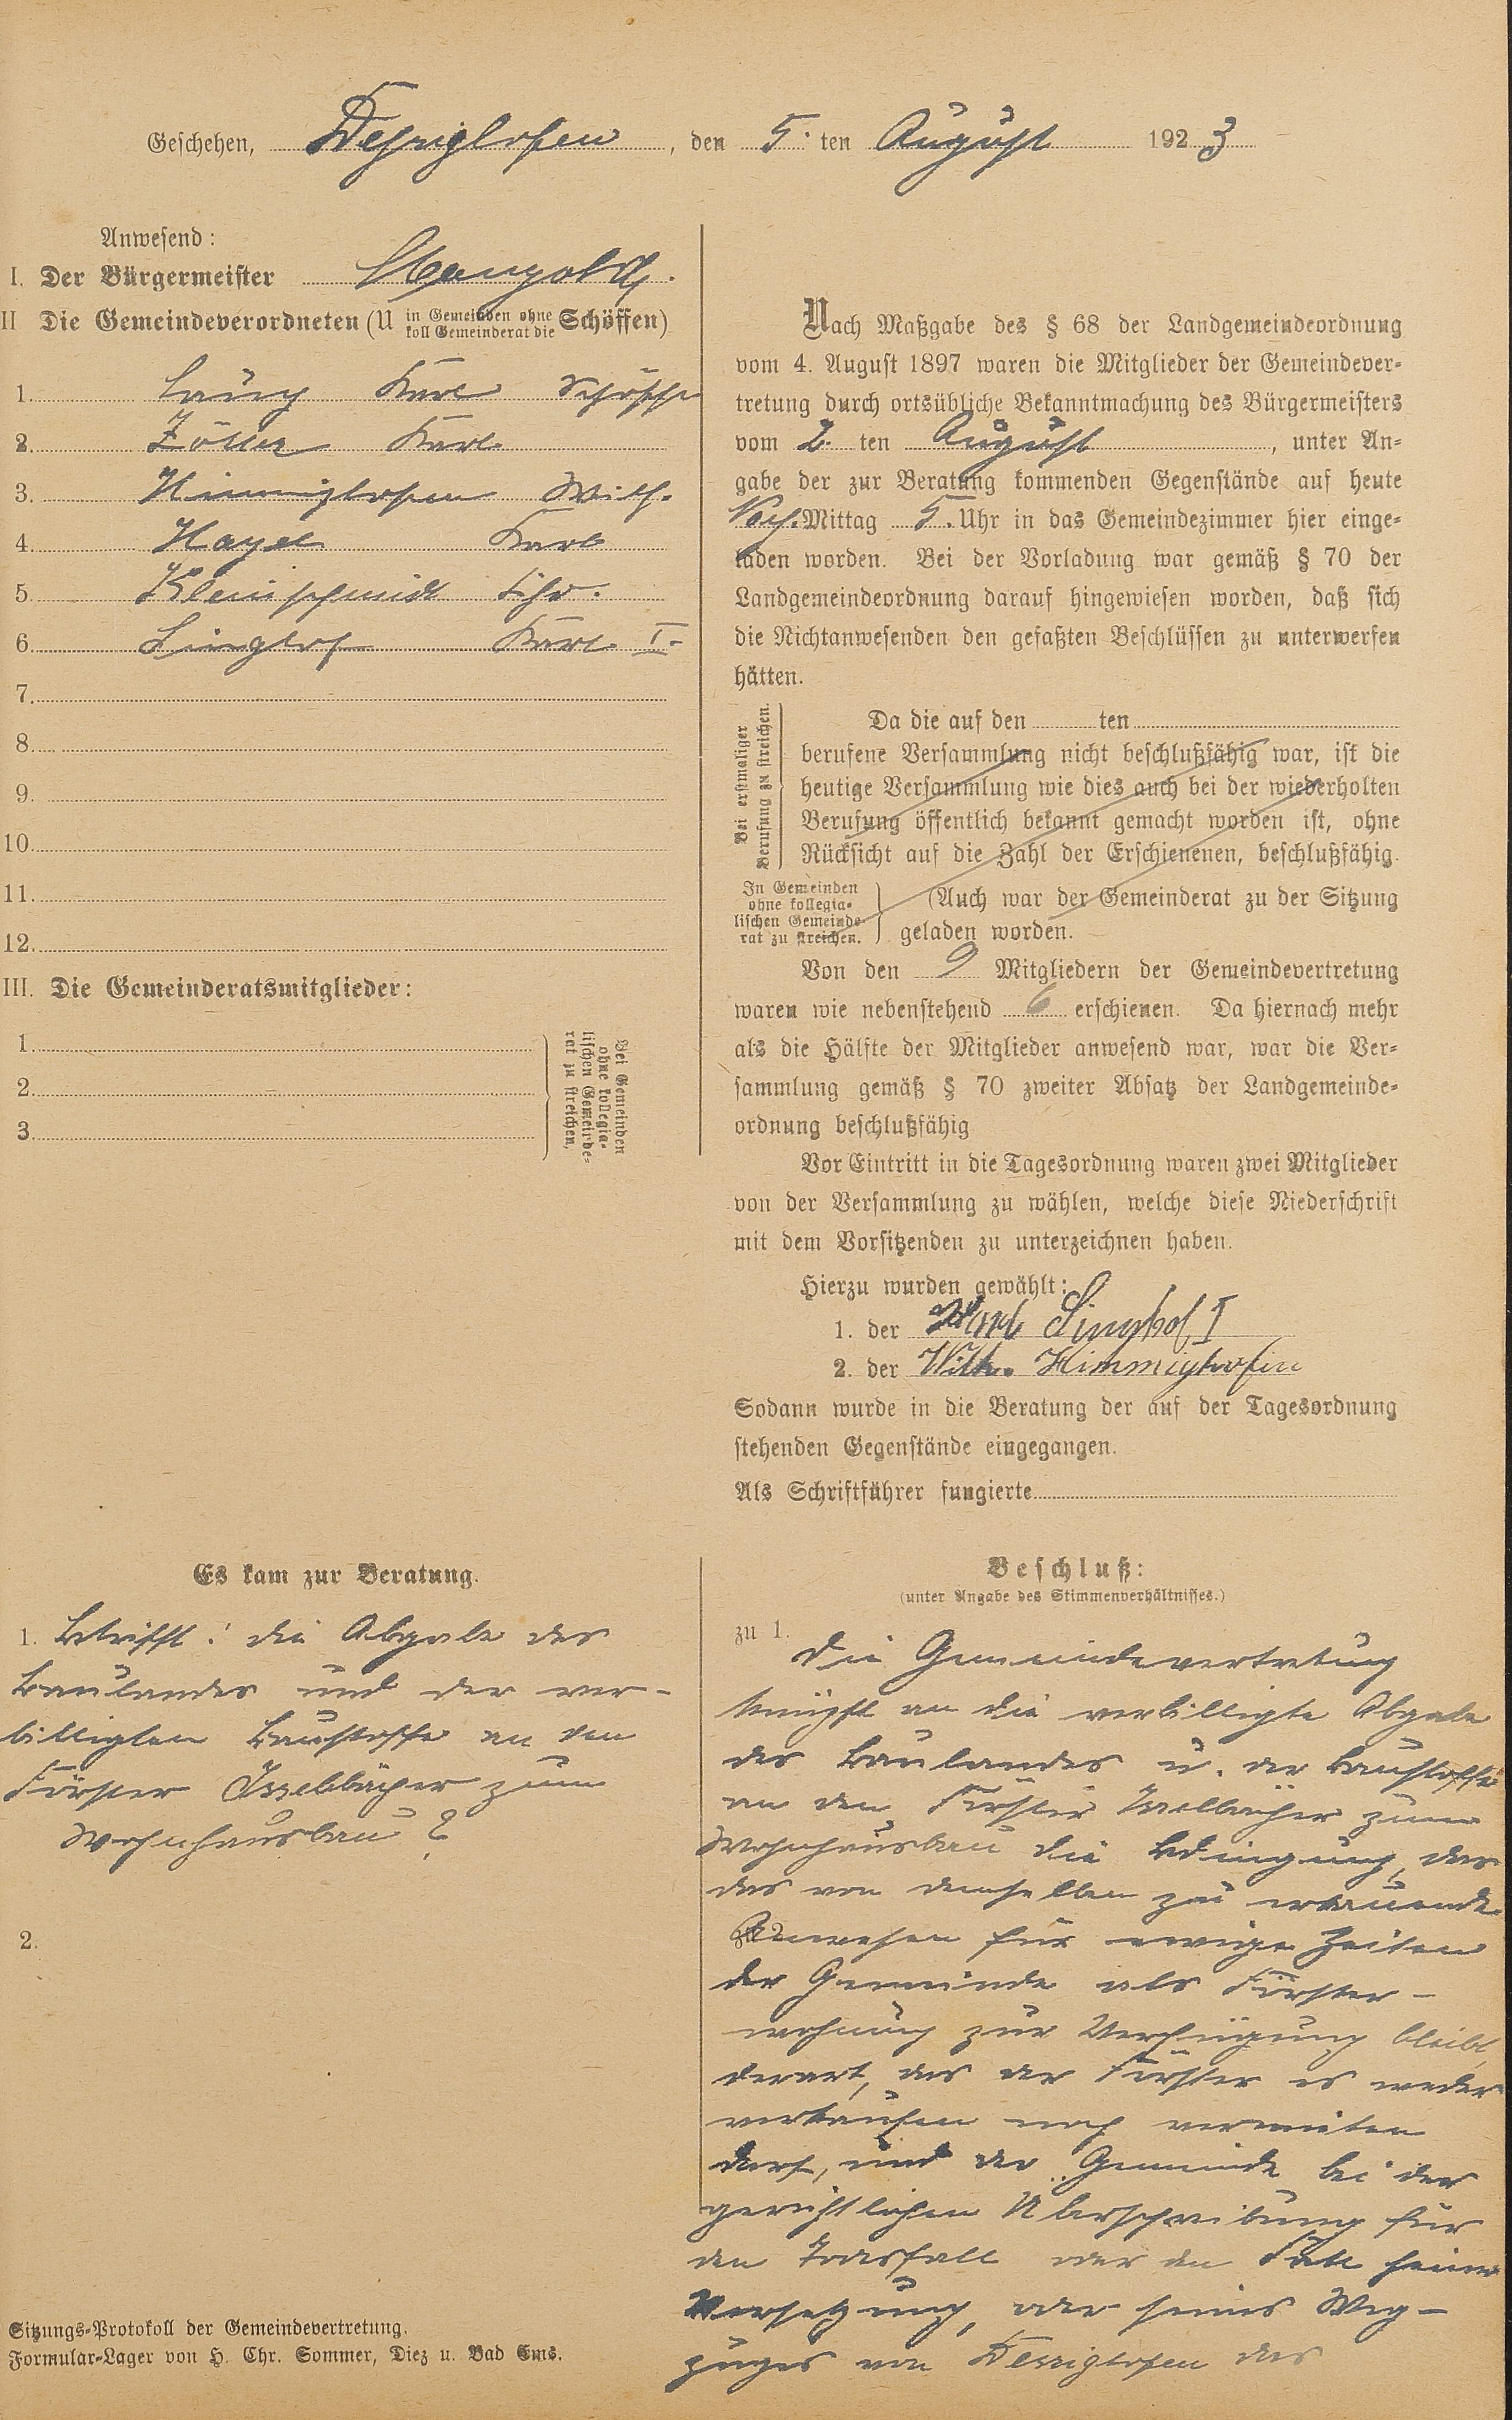 Geschehen, Dessighofen, den 5. ten August 1923
Anwesend:
I. Der Bürgermeister Mengold
II Die Gemeindeverordneten (U in Gemeinden ohne koll Gemeinderat die Schöffen)
1. Laux Karl Schöffe
2. Zöller Karl
3. Himmighofen Wilh.
4. Hagel Karl
5. Kleinschmidt Chr.
6. Singhof Karl I.
7.
8.
9.
10.
11.
12.
III. Die Gemeinderatsmitglieder:
1.
2.
3.
Bei Gemeinden
ohne kollegia-
lischen Gemeinde-
rat zu streichen.
Nach Maßgabe des § 68 der Landgemeindeordnung
vom 4. August 1897 waren die Mitglieder der Gemeindever-
tretung durch ortsübliche Bekanntmachung des Bürgermeisters
vom 2. ten August, unter An-
gabe der zur Beratung kommenden Gegenstände auf heute
Nach. Mittag 5. Uhr in das Gemeindezimmer hier einge-
laden worden. Bei der Vorladung war gemäß § 70 der
Landgemeindeordnung darauf hingewiesen worden, daß sich
die Nichtanwesenden den gefaßten Beschlüssen zu unterwerfen
hätten.
Bei erstmaliger
Berufung zu streichen.
Da die auf den ten
berufene Versammlung nicht beschlußfähig war, ist die
heutige Versammlung wie dies auch bei der wiederholten
Berufung öffentlich bekannt gemacht worden ist, ohne
Rücksicht auf die Zahl der Erschienenen, beschlußfähig.
In Gemeinden
ohne kollegia-
lischen Gemeinde-
rat zu streichen.
(Auch war der Gemeinderat zu der Sitzung
geladen worden.
Von den 9 Mitgliedern der Gemeindevertretung
waren wie nebenstehend 6 erschienen. Da hiernach mehr
als die Hälfte der Mitglieder anwesend war, war die Ver-
sammlung gemäß § 70 zweiter Absatz der Landgemeinde-
ordnung beschlußfähig
Vor Eintritt in die Tagesordnung waren zwei Mitglieder
von der Versammlung zu wählen, welche diese Niederschrift
mit dem Vorsitzenden zu unterzeichnen haben.
Hierzu wurden gewählt:
1. der Karl Singhof I
2. der Wilh. Himmighofen
Sodann wurde in die Beratung der auf der Tagesordnung
stehenden Gegenstände eingegangen.
Als Schriftführer fungierte
Es kam zur Beratung.
1. Betrifft: die Abgabe des
Baulandes und der ver-
billigten Baustoffe an den
Förster Isselbächer zum
Wohnhausbau ?
2.
Beschluß:
(unter Angabe des Stimmenverhältnisses.)
zu 1.
Die Gemeindevertretung
knüpft an die verbilligte Abgabe
des Baulandes u. der Baustoffe
an den Förster Isselbächer zum
Wohnhausbau die Bedingung, das
das von demselben zu erbauende
Anwesen für ewige Zeiten
der Gemeinde als Förster-
wohnung zur Verfügung bleibt,
derart, das der Förster es weder
verkaufen noch vermieten
darf, und der Gemeinde bei der
gerichtlichen Überschreibung für
den Todesfall oder den Fall seiner
Versetzung, oder seines Weg-
zuges von Dessighofen das
Sitzungs-Protokoll der Gemeindevertretung.
Formular-Lager von H. Chr. Sommer, Diez u. Bad Ems.